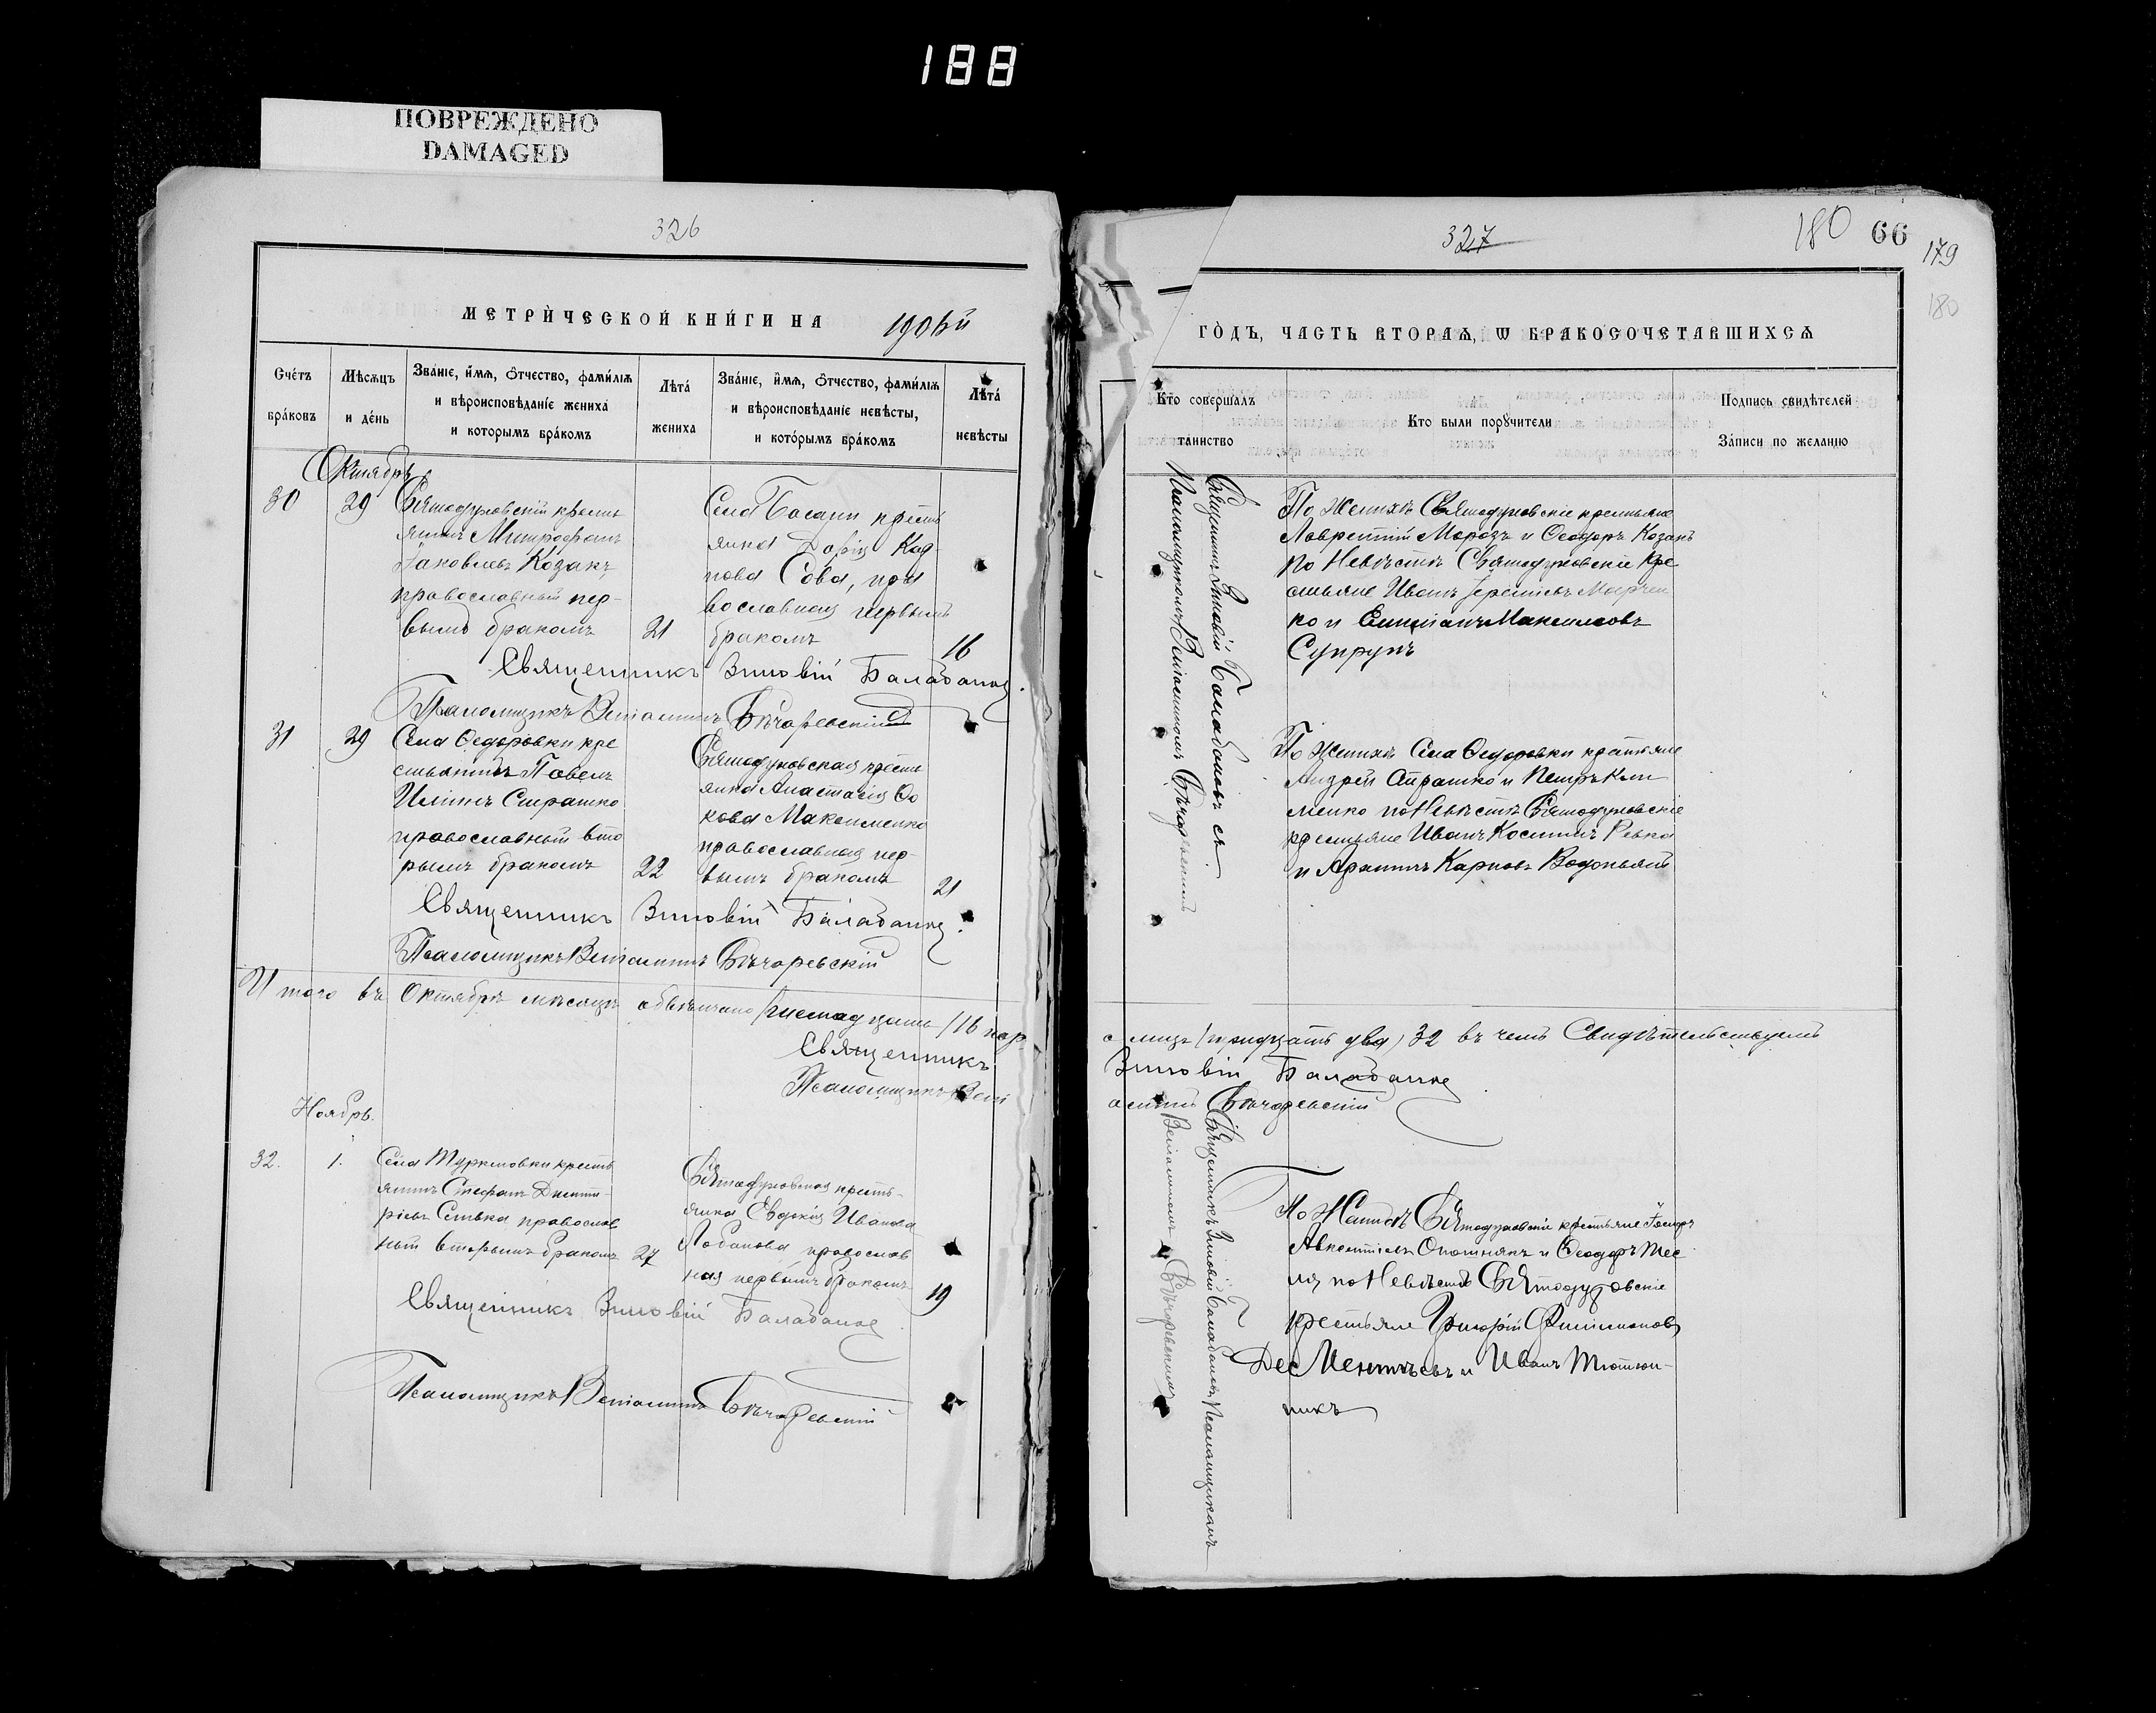 188
ПОВРЕЖДЕНО
DAMAGED
326
МЕТРИ́ЧЕСКОЙ КНИ́ГИ НА 1906й
Сче́тъ бра́ковъ
Мѣсѧцъ и де́нь
Зва́нїе, и҆́мѧ, ѻ҆́тчество, фами́лїѧ и вѣроисповѣда́нїе жениха̀ и которымъ бра́комъ
Лѣта́ жениха
Зва́нїе, и҆́мѧ, ѻ҆́тчество, фами́лїѧ и вѣроисповѣда́нїе невѣ́сты, и кото́рымъ бра́комъ
Лѣта́ невѣ́сты
Октябрь
30 29 Святодуховскій кресть
янинъ Митрофанъ
Іаковлевъ Козакъ
православный пер-
вымъ бракомъ 21
Села Басани кресть
янка Дарія Кар
пова Сова, пра
вославная первымъ
бракомъ 16
Священникъ Зиновій Балабанов
Псаломщикъ Веніаминъ
31 29 Села Ѳедоровки кре
стьянинъ Павелъ
Иліинъ Сирашко
православный вто
рымъ бракомъ 22
Святодуховская кресть
янка Анастасія Ѳо
кова Максименко
православная пер-
вымъ бракомъ 21
Священникъ Зиновій Балабанов
Псаломщикъ Веніаминъ
Итого въ Октябрѣ мѣсяцѣ обвѣнчано (шестнадцать) 16 пар
Священникъ
Псаломщикъ Вені
Ноябрь.
32. 1. Села Туркеновки кресть
янинъ Стефанъ Димит-
ріевъ Сенька православ
ный вторымъ бракомъ 27
Святодуховская кресть-
янка Евдокія Иванова
Лобанова православ
ная первымъ бракомъ 19
Священникъ Зиновій Балабанов
Псаломщикъ Веніаминъ
327
180 66
179
180
ГО́ДЪ, ЧАСТЬ ВТОРАѦ, Ѡ БРАКОСОЧЕТАВШИХСѦ
Кто̀ соверша́лъ таинство
Кто были порꙋчители
Подпись свидѣ́телей За́писи по желанїю
Священникъ Зиновій Балабановъ съ
Псаломщикомъ Веніаминомъ
По Женихѣ Святодуховскіе крестьяне
Лаврентій Морозъ и Ѳеодоръ Козакъ
по Невѣстѣ Святодуховскіе Кре
стьяне Иванъ Іереміевъ Марчен
ко и Максимовъ
Супрунъ
По Женихѣ Села Ѳедоровки крестьяне
Андрей Сирашко и Петръ Кли
менко по Невѣстѣ Святодуховскіе
крестьяне Иванъ Косминъ Ревка
и Карповъ Водопьянъ
а лицъ (тридцать два) 32 въ чемъ Свидѣтельствуемъ
Зиновій Балабанов
аминъ
Священникъ Зиновій Балабановъ Псаломщикомъ
Веніаминомъ
По Женихѣ Святодуховскіе крестьяне
и Ѳеодоръ Тес
ля по Невѣстѣ Святодуховскіе
крестьяне Григорій Филимоновъ
Дементьевъ и Иванъ Тютюн-
никъ